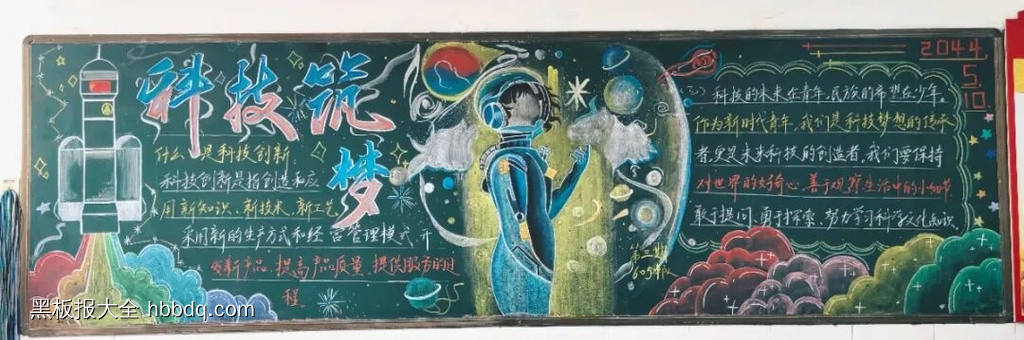 科技筑梦
什么是科技创新:
科技创新是指创造和应
用新知识、新技术、新工艺
采用新的生产方式和经营管理模式,开
发新产品,提高产品质量,提供服务的过
程
第三期
605中队
2044.
5.
10.
科技的未来在青年,民族的希望在少年。
作为新时代青年,我们是科技梦想的传承
者,更是未来科技的创造者,我们要保持
对世界的好奇心,善于观察生活中的小细节,
敢于提问、勇于探索、努力学习科学文化知识。
黑板报大全 hbbdq.com